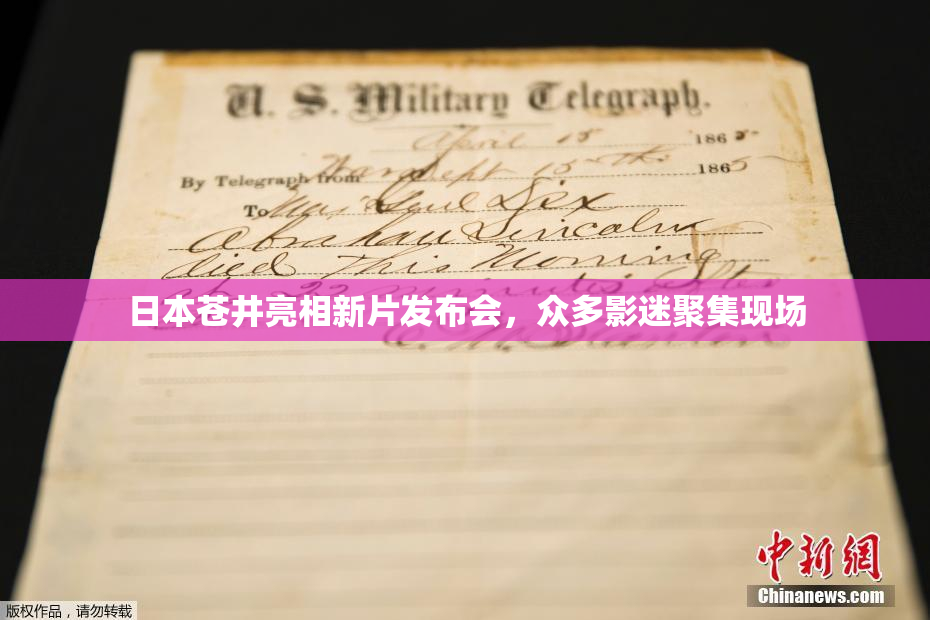 U. S. Military Telegraph.
April 15 1865.
By Telegraph from War Dept 15th 1865
To Maj Genl Dix
Abraham Lincoln
died This Morning
at 22 minutes after
日本苍井亮相新片发布会，众多影迷聚集现场
E. M. Stanton
中新网
Chinanews.com
版权作品，请勿转载